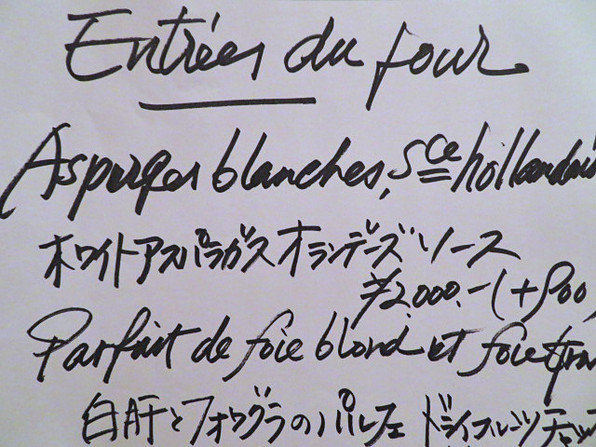 Entrées du jour
Asperges blanches, Sce hollandais
ホワイトアスパラガス オランデーズソース
¥2.000.-(+800
Parfait de foie blond et foie gra
白肝とフォワグラのパルフェ ドライフルーツ